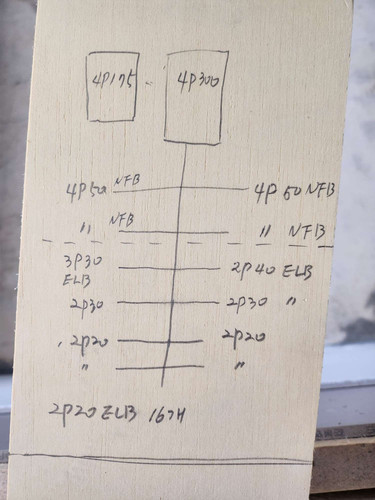 4P175 - 4P300
4P50 NFB 4P50 NFB
〃 NFB 〃 NFB
3P30 2P40 ELB
ELB
2P30 2P30 〃
2P20 2P20
〃 〃
2P20 ELB 167H